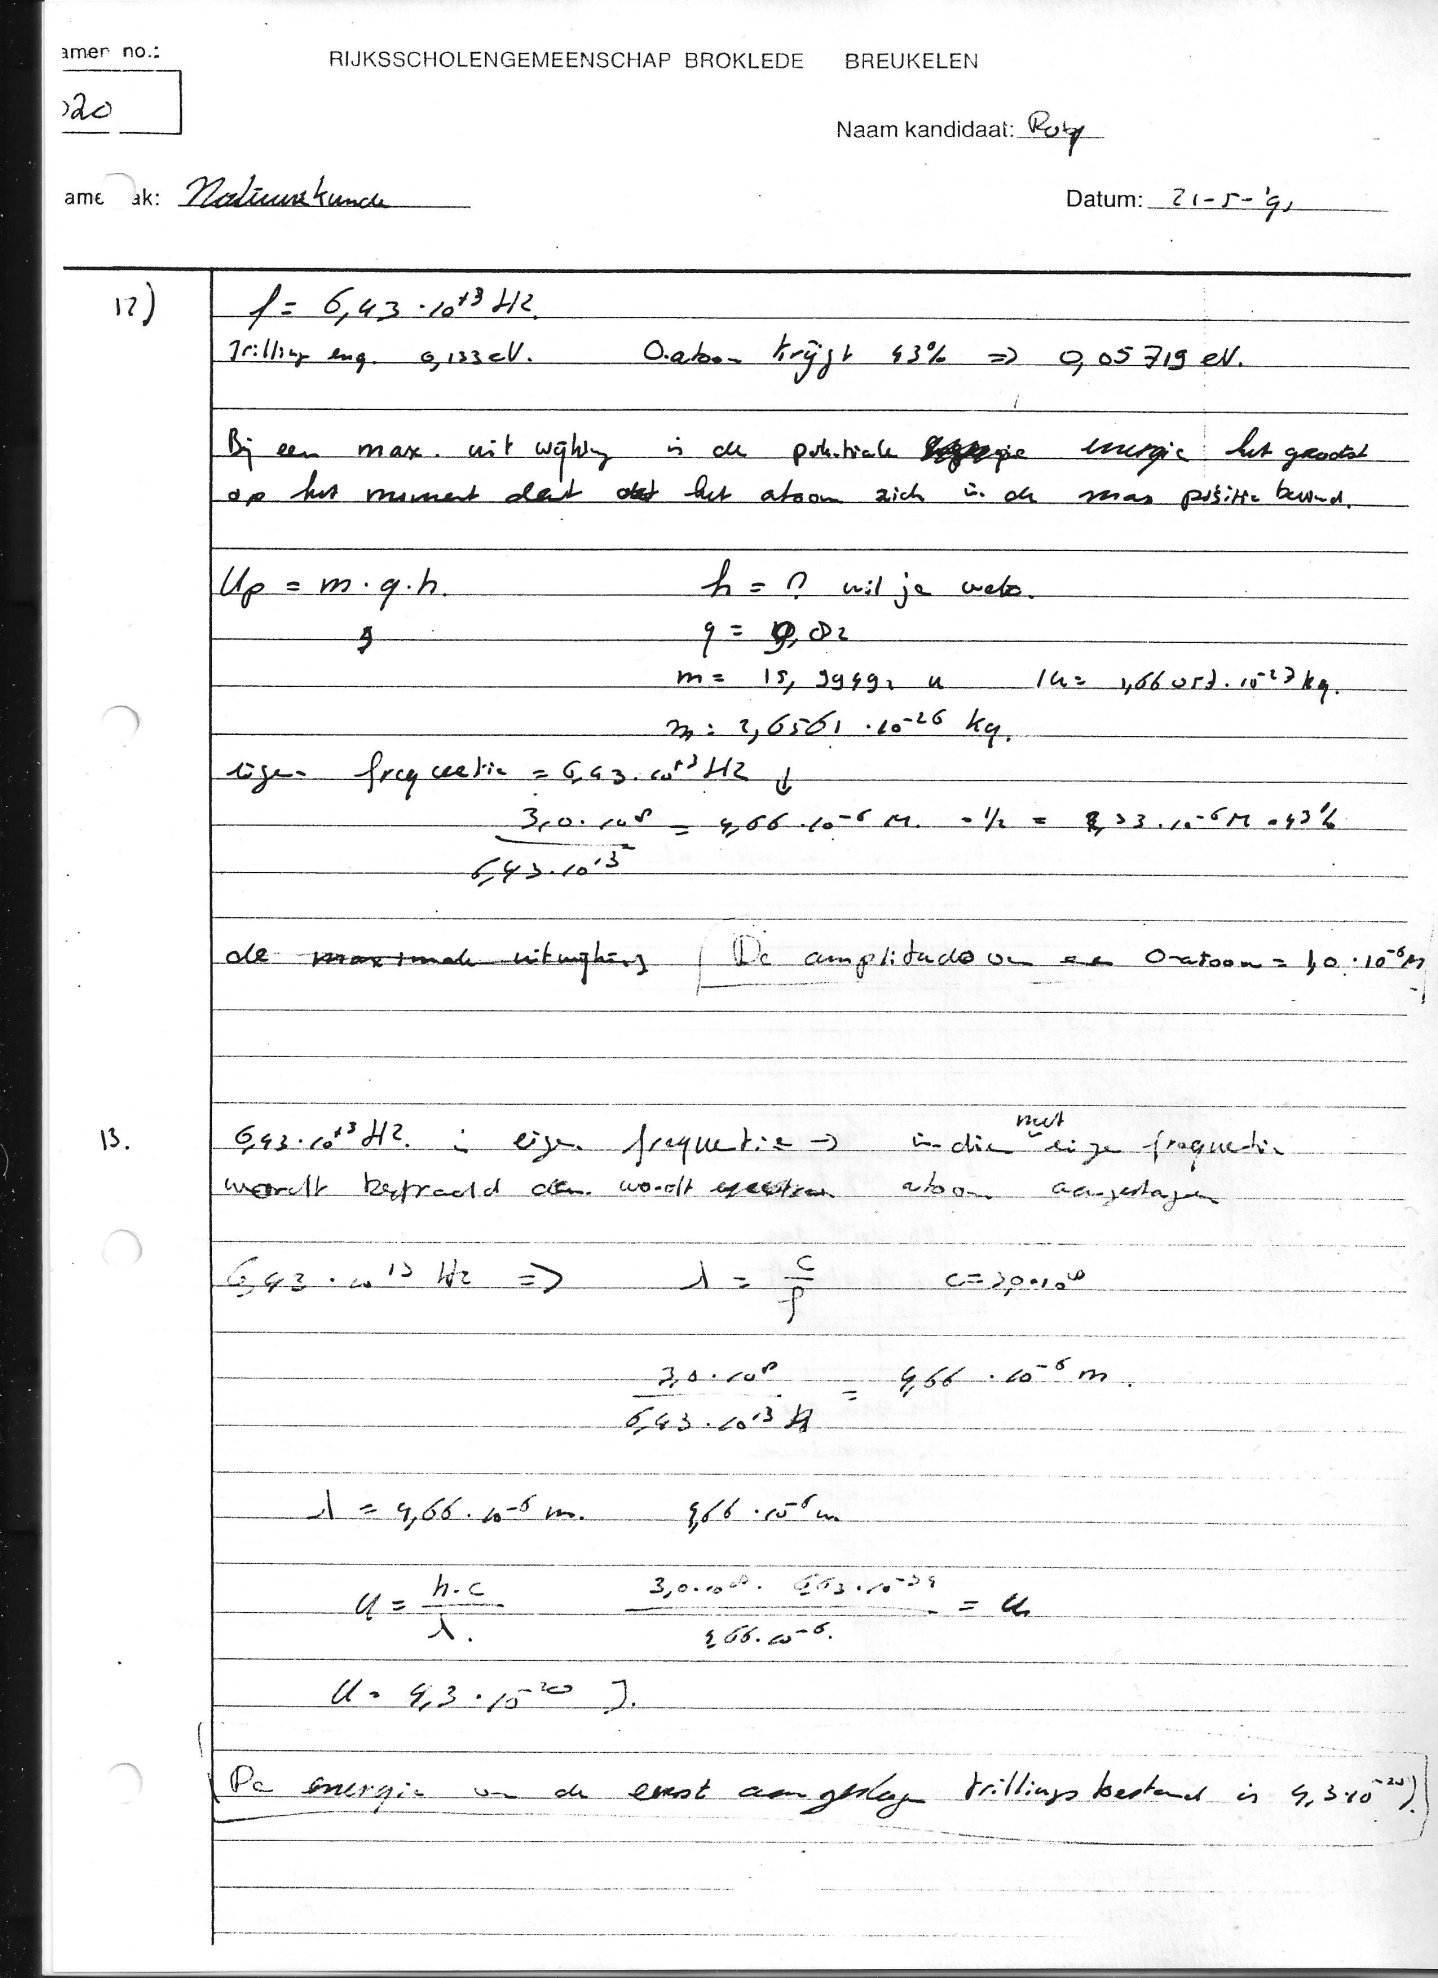 amen no.:
RIJKSSCHOLENGEMEENSCHAP BROKLEDE BREUKELEN
020
Naam kandidaat:
ame ak: Natuurkunde
Datum: 21-5-'91
12)
f = 6,43 · 10^13 Hz.
Trilling eng. 0,133 eV. O.atoom krijgt 43% => 0,05719 eV.
Bij een max. uitwijking is de potentiale energie het grootst
op het moment dat het atoom zich in de max positie bevind.
Up = m · g · h. h = ? wil je weten.
g = 9,82
m = 15,99491 u 1u = 1,66057 · 10^-27 kg.
m = 2,6561 · 10^-26 kg.
eigen frequentie = 6,43 · 10^13 Hz ↓
3,0 · 10^8 = 4,66 · 10^-6 M. · 1/2 = 2,33 · 10^-6 M · 43%
6,43 · 10^13
de maximale uitwijking De amplitude van een O-atoom = 1,0 · 10^-6 M
13.
met
6,43 · 10^13 Hz. is eigen frequentie → indien eigen frequentie
wordt bestraald dan wordt atoom aangeslagen
6,43 · 10^13 Hz => λ = c/f c = 3,0 · 10^8
3,0 · 10^8 = 4,66 · 10^-6 m.
6,43 · 10^13
λ = 4,66 · 10^-6 m. 4,66 · 10^-6 m
U = h·c / λ. 3,0 · 10^8 · 6,63 · 10^-34 / 4,66 · 10^-6. = U
U = 4,3 · 10^-20 J.
De energie van de eerst aangeslagen trillings toestand is 4,3 · 10^-20 J.